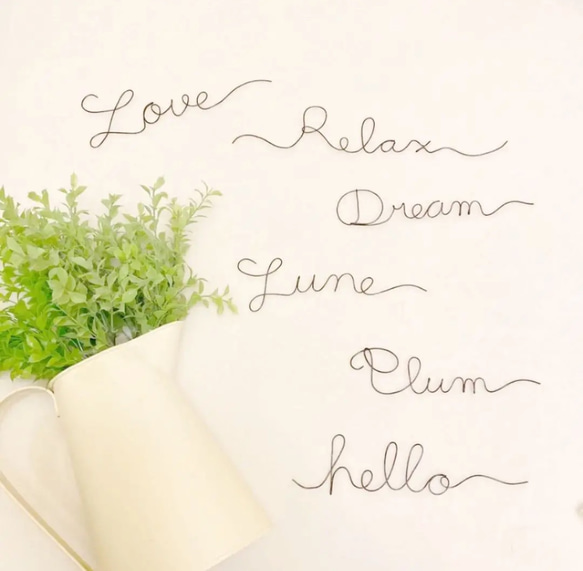 Love
Relax
Dream
Lune
Plum
hello